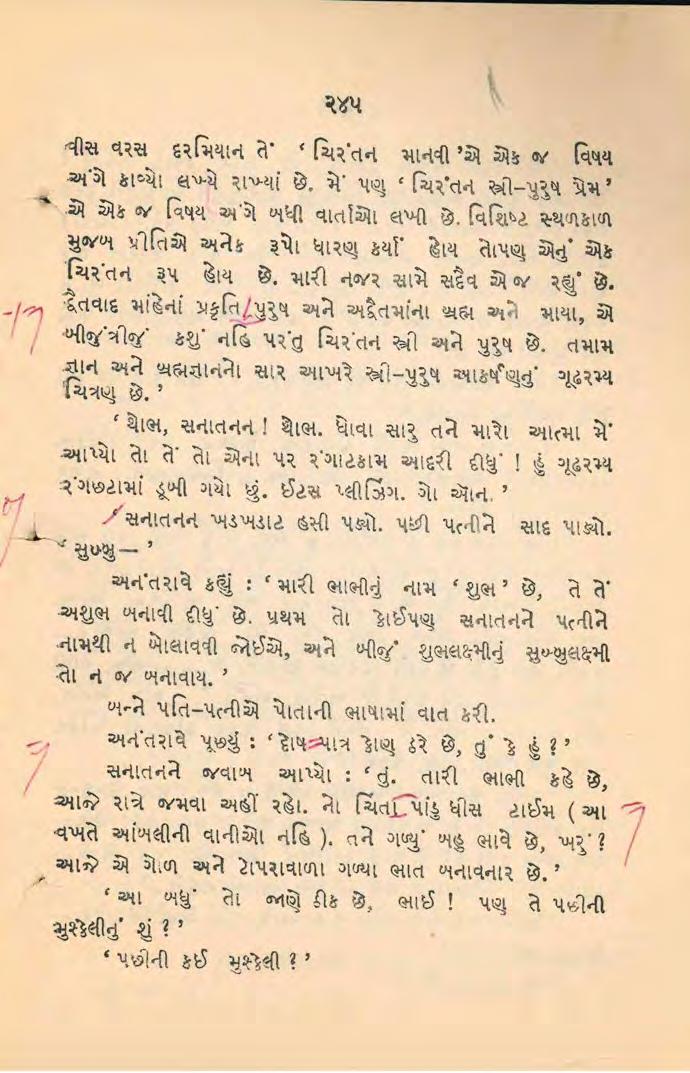 ૨૪૫
વીસ વરસ દરમિયાન તેં ‘ ચિરંતન માનવી ’એ એક જ વિષય
અંગે કાવ્યો લખ્યે રાખ્યાં છે. મેં પણ ‘ ચિરંતન સ્ત્રી–પુરુષ પ્રેમ’
એ એક જ વિષય અંગે બધી વાર્તાઓ લખી છે. વિશિષ્ટ સ્થળકાળ
મુજબ પ્રીતિએ અનેક રૂપો ધારણ કર્યાં હોય તોપણ એનું એક
ચિરંતન રૂપ હોય છે. મારી નજર સામે સદૈવ એ જ રહ્યું છે.
દ્વૈતવાદ માંહેનાં પ્રકૃતિ/પુરુષ અને અદ્વૈતમાંના બ્રહ્મ અને માયા, એ
બીજુંત્રીજું કશું નહિ પરંતુ ચિરંતન સ્ત્રી અને પુરુષ છે. તમામ
જ્ઞાન અને બ્રહ્મજ્ઞાનનો સાર આખરે સ્ત્રી–પુરુષ આકર્ષણનું ગૂઢરમ્ય
ચિત્રણ છે.’
‘ થોભ, સનાતનન ! થોભ. ધોવા સારુ તને મારો આત્મા મેં
આપ્યો તો તેં તો એના પર રંગાટકામ આદરી દીધું ! હું ગૂઢરમ્ય
રંગછટામાં ડૂબી ગયો છું. ઈટસ પ્લીઝિંગ. ગો ઑન. ’
સનાતનન ખડખડાટ હસી પડ્યો. પછી પત્નીને સાદ પાડ્યો.
‘ સુબ્બુ— ’
અનંતરાવે કહ્યું : ‘ મારી ભાભીનું નામ ‘ શુભ ’ છે, તે તેં
અશુભ બનાવી દીધું છે. પ્રથમ તો કોઈપણ સનાતનને પત્નીને
નામથી ન બોલાવવી જોઈએ, અને બીજું શુભલક્ષ્મીનું સુબ્બુલક્ષ્મી
તો ન જ બનાવાય. ’
બન્ને પતિ–પત્નીએ પોતાની ભાષામાં વાત કરી.
અનંતરાવે પૂછ્યું : ‘ દોષ=પાત્ર કોણ ઠરે છે, તું કે હું ? ’
સનાતનને જવાબ આપ્યો : ‘ તું. તારી ભાભી કહે છે,
આજે રાત્રે જમવા અહીં રહો. નો ચિંતા પાંડુ ધીસ ટાઈમ ( આ
વખતે આંબલીની વાનીઓ નહિ ). તને ગળ્યું બહુ ભાવે છે, ખરું ?
આજે એ ગોળ અને ટોપરાવાળા ગળ્યા ભાત બનાવનાર છે. ’
‘ આ બધું તો જાણે ઠીક છે, ભાઈ ! પણ તે પછીની
મુશ્કેલીનું શું ? ’
‘ પછીની કઈ મુશ્કેલી ? ’